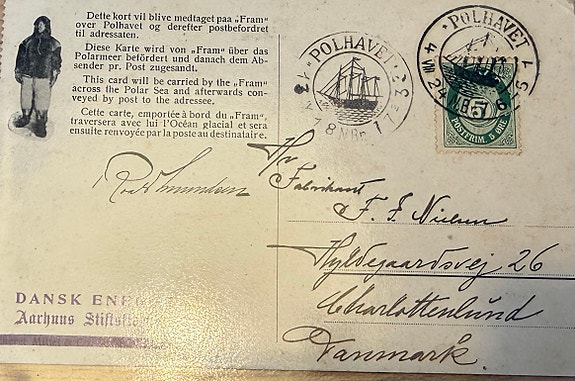 Dette kort vil blive medtaget paa „Fram“
over Polhavet og derefter postbefordret
til adressaten.
Diese Karte wird von „Fram“ über das
Polarmeer befördert und danach dem Ab-
sender pr. Post zugesandt.
This card will be carried by the „Fram“
across the Polar Sea and afterwards
conveyed by post to the adressee.
Cette carte, emportée à bord du „Fram“,
traversera avec lui l'Océan glacial et sera
ensuite renvoyée par la poste au destinataire.
POLHAVET
POLHAVET
4 VIII 24
5
POSTFRIM. 5 ØRE
Hr
Fabrikant
F. F. Nielsen
Hyldegaardsvej 26
Charlottenlund
Danmark.
DANSK
Aarhuus